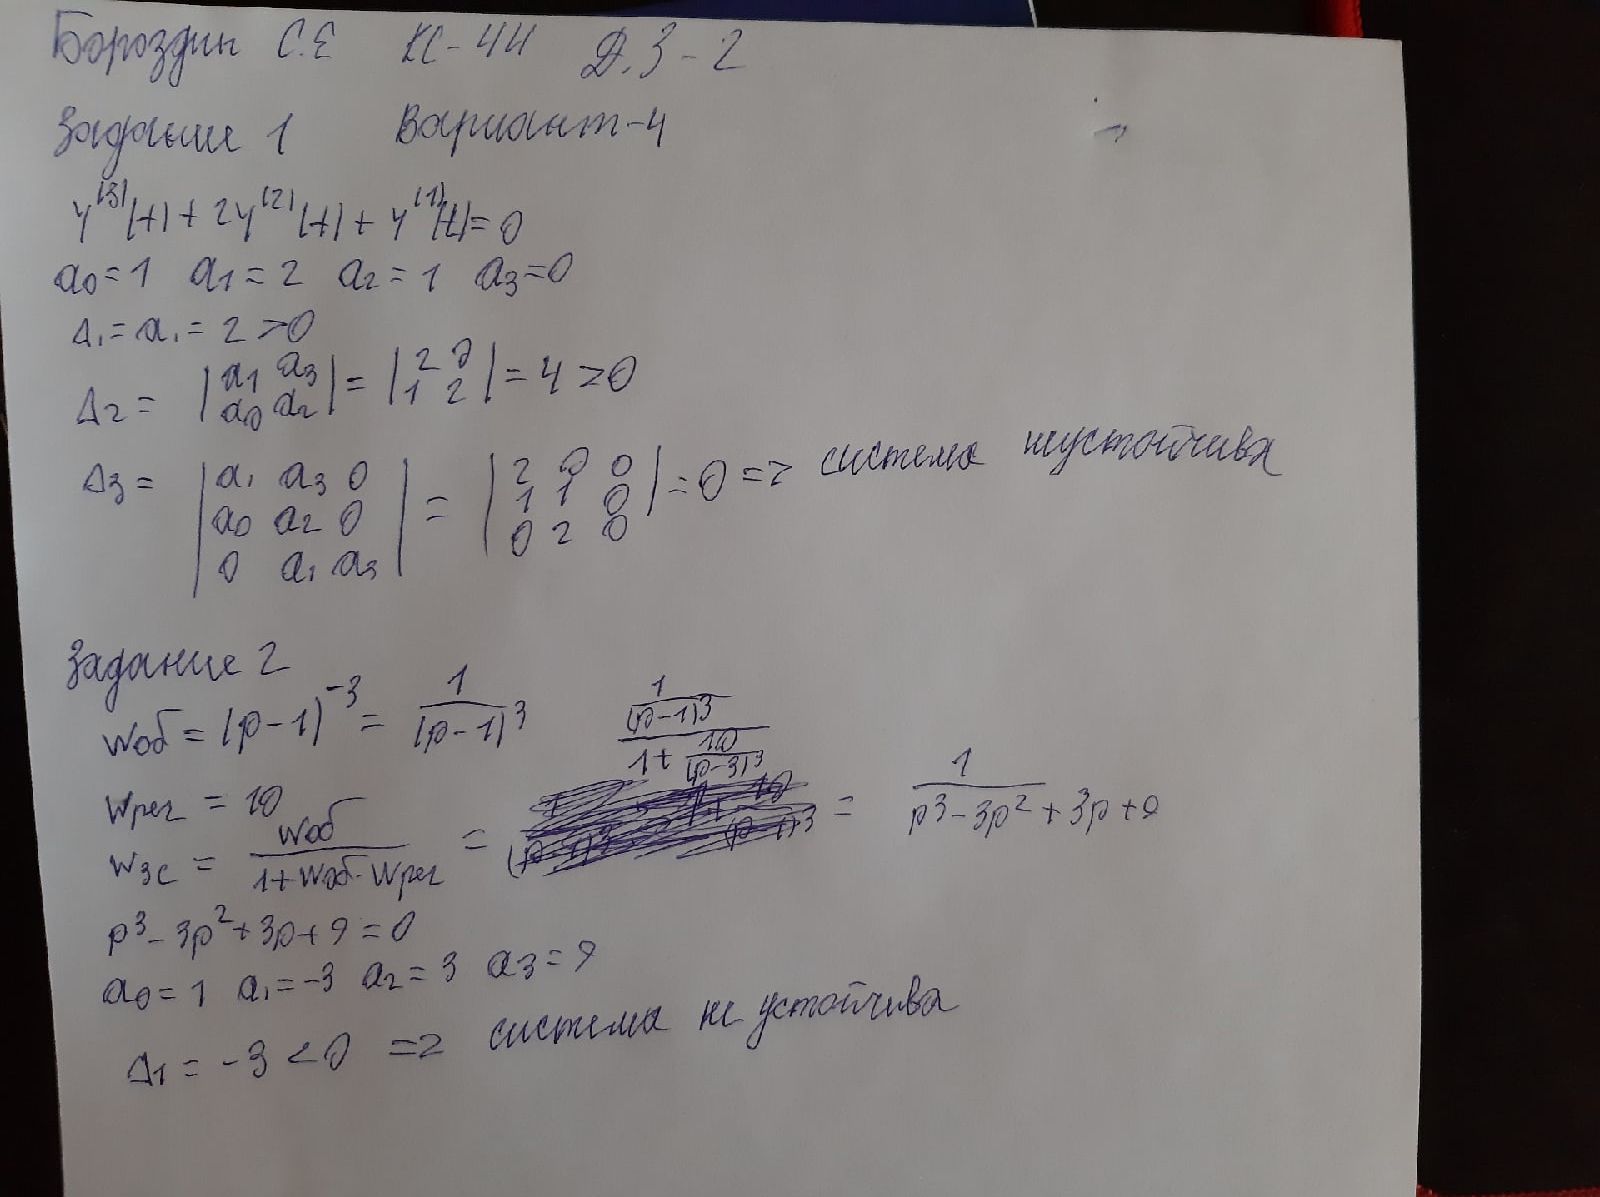 Бороздин С.Е КС-44 Д.З-2
Задание 1 Вариант-4
y^(3)(t) + 2y^(2)(t) + y^(1)(t) = 0
a0=1 a1=2 a2=1 a3=0
Δ1 = a1 = 2 >0
Δ2 = |a1 a3; a0 a2| = |2 0; 1 2| = 4 >0
Δ3 = |a1 a3 0; a0 a2 0; 0 a1 a3| = |2 0 0; 1 1 0; 0 2 0| = 0 => система неустойчива
Задание 2
Wоб = (p-1)^-3 = 1/(p-1)^3
Wрег = 10
Wзс = Wоб/(1+Wоб·Wрег) = (1/(p-1)^3)/(1+10/(p-3)^3) = 1/(p^3-3p^2+3p+9)
p^3-3p^2+3p+9=0
a0=1 a1=-3 a2=3 a3=9
Δ1 = -3 <0 => система не устойчива